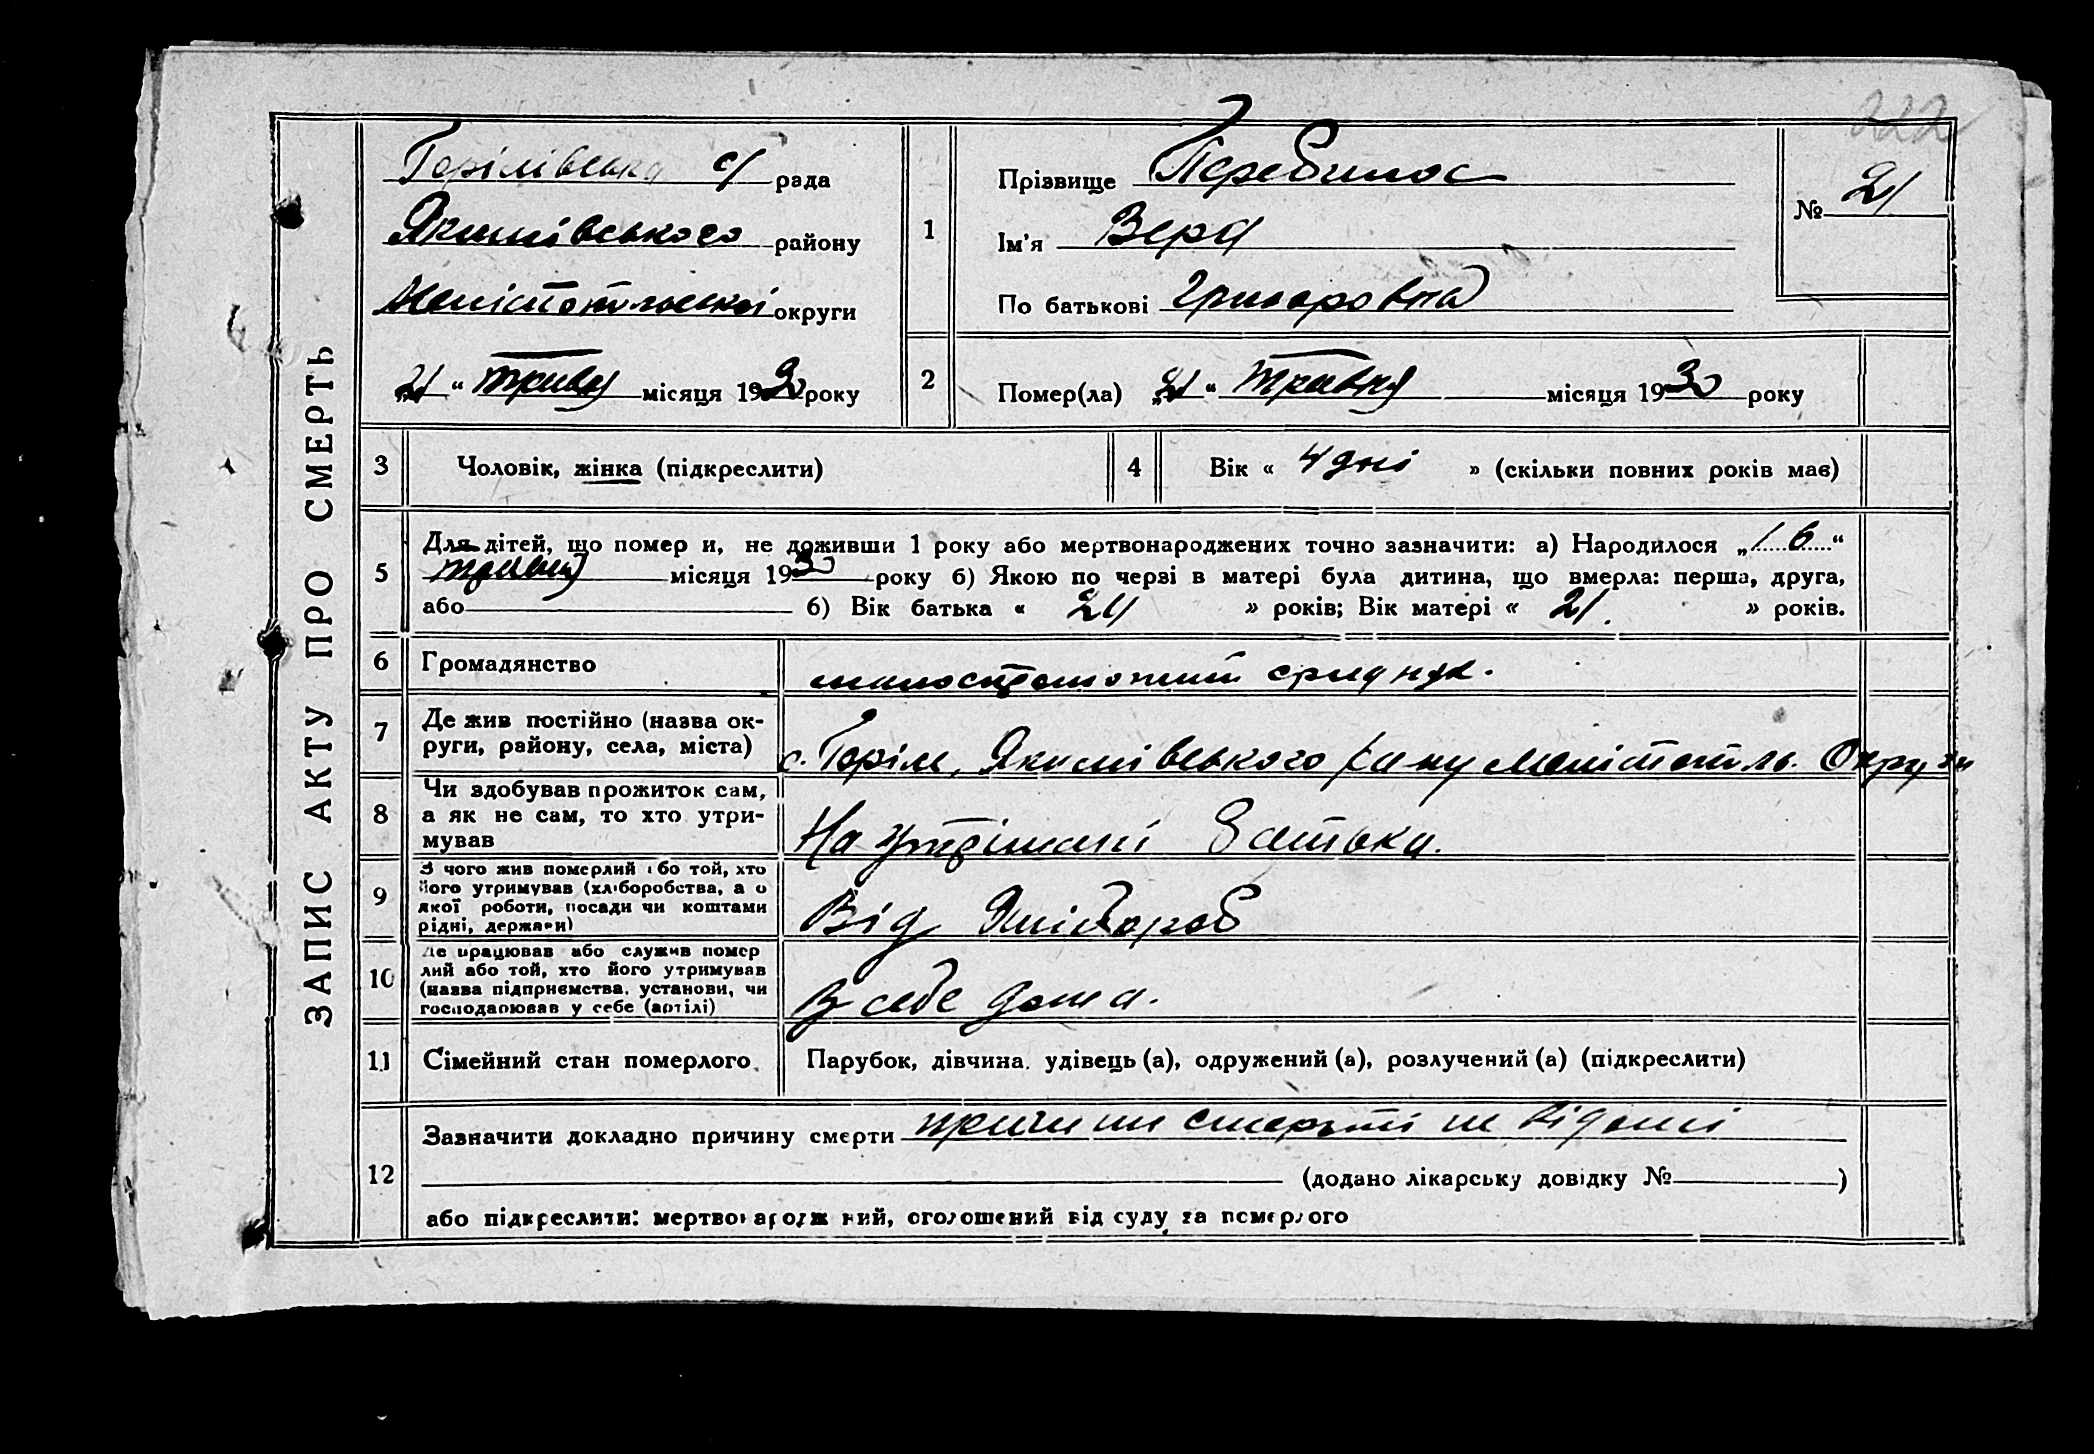 222
ЗАПИС АКТУ ПРО СМЕРТЬ
Горілівська с/ рада
Якимівського району
Мелітопольської округи
„21“ травня місяця 1930 року
1
Прізвище Перебинос
Ім’я Вера
По батькові Григоровна
№ 21
2
Помер(ла) „21“ травня місяця 1930 року
3
Чоловік, жінка (підкреслити)
4
Вік « 4 дні » (скільки повних років має)
5
Для дітей, що помер и, не доживши 1 року або мертвонароджених точно зазначити: а) Народилося „16“
травня місяця 1930 року б) Якою по черзі в матері була дитина, що вмерла: перша, друга,
або б) Вік батька « » років; Вік матері « 21. » років.
6
Громадянство
7
Де жив постійно (назва ок-
руги, району, села, міста)
с. Горіле, Якимівського р-ну Мелітополь. Округи
8
Чи здобував прожиток сам,
а як не сам, то хто утри-
мував
На утрімані батька.
9
З чого жив померлий або той, хто
його утримував (хліборобства, а о
якої роботи, посади чи коштами
рідні, держави)
Від
10
Де працював або служив помер
лий або той, хто його утримував
(назва підприємства, установи, чи
господарював у себе (артілі)
У себе дома.
11
Сімейний стан померлого.
Парубок, дівчина. удівець (а), одружений (а), розлучений (а) (підкреслити)
12
Зазначити докладно причину смерти причини смерті не відомі
(додано лікарську довідку № )
або підкреслити: мертвонароджений, оголошений від суду за померлого